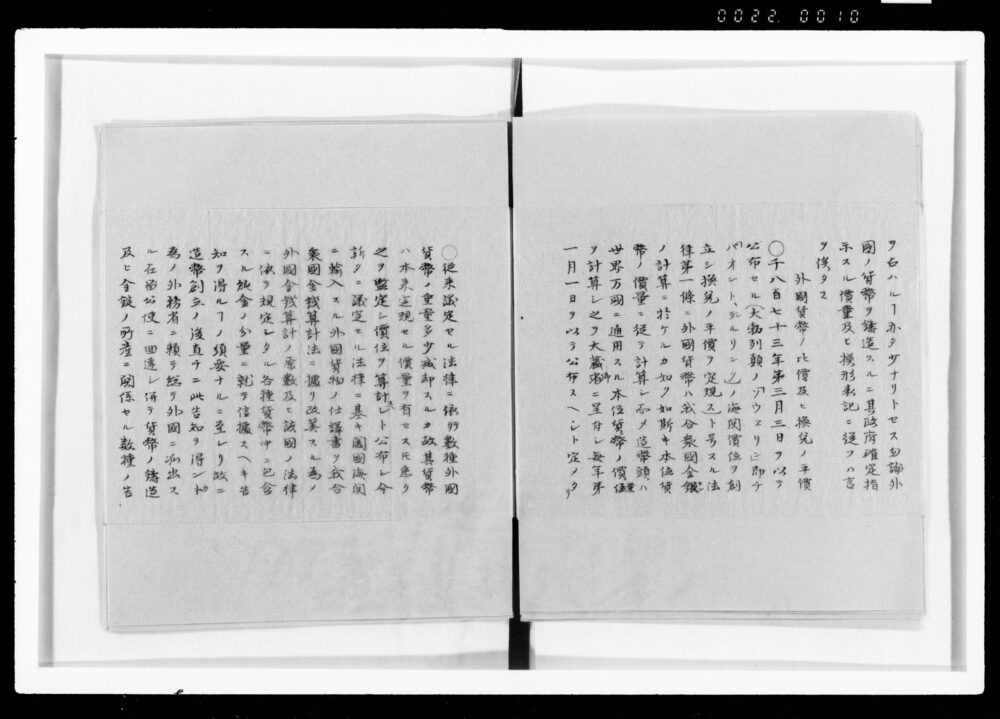 0022. 0010
ヲ占ハルー亦タ少ナリトセス勿論外
國ノ貨幣ヲ鑄造スルニ其政府確定指
示スル價量及ヒ模形表記ニ從フハ言
ヲ俟タス
外國貨幣ノ比價及ヒ換兌ノ平價
〇千八百七十三年第三月三日ヲ以テ
公布セル
立シ換兌ノ平價ヲ定規ス」ト号スル法
律第一條ニ外國貨幣ハ我合衆國金銀
ノ計算ニ於ケルカ如ク如斯キ本位貨
幣ノ價量ニ從テ計算シ而メ造幣頭ハ
世界万國ニ通用スル本位貨幣ノ價位
ヲ計算シ之ヲ大藏卿ニ呈付シ毎年第
一月一日ヲ以テ公布スヘシト定メタリ
〇從来議定セル法律ニ依リ数種外國
貨幣ノ重量多少減却スルカ故其貨幣
ハ本来定規セル價量ヲ有セス
之ヲ鑒定シ價位ヲ算計スヘシト公布シ今
新タニ議定セル法律ニ基キ闔國海関
ニ輸入スル外國貨物ノ仕譯書ヲ我合
衆國金銭算計法ニ據リ改算スル為メ
外國金銭算計ノ原数及ヒ該國ノ法律
ニ依テ規定シタル各種貨幣中ニ包含
スル純金ノ分量ニ就テ信據スヘキ告
知ヲ得ルーノ須要ナルニ至レリ故ニ
造幣創立ノ後直チニ此告知ヲ得ン
為メ外務省ニ頼テ総テ外國ニ派出ス
ル在留公使ニ回達シ併テ貨幣ノ鑄造
及ヒ金錠ノ所産ニ関係セル数種ノ告